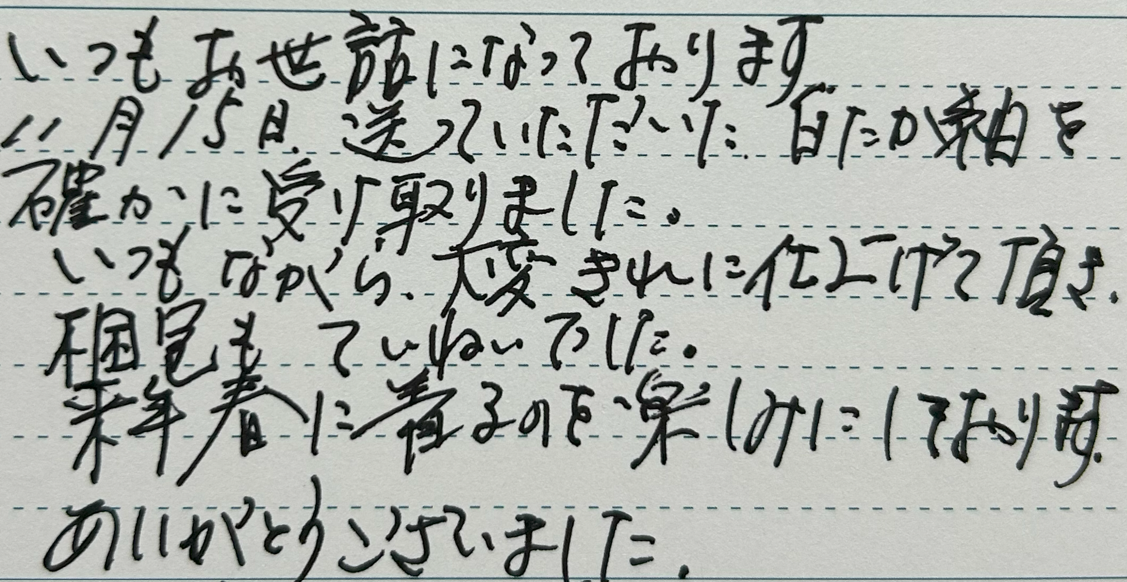 いつもお世話になっております
11月15日、送っていただいた、白たか紬を
確かに受け取りました。
いつもながら、大変きれいに仕上げて頂き、
梱包も ていねいでした。
来年春に着るのを楽しみにしております。
ありがとうございました。